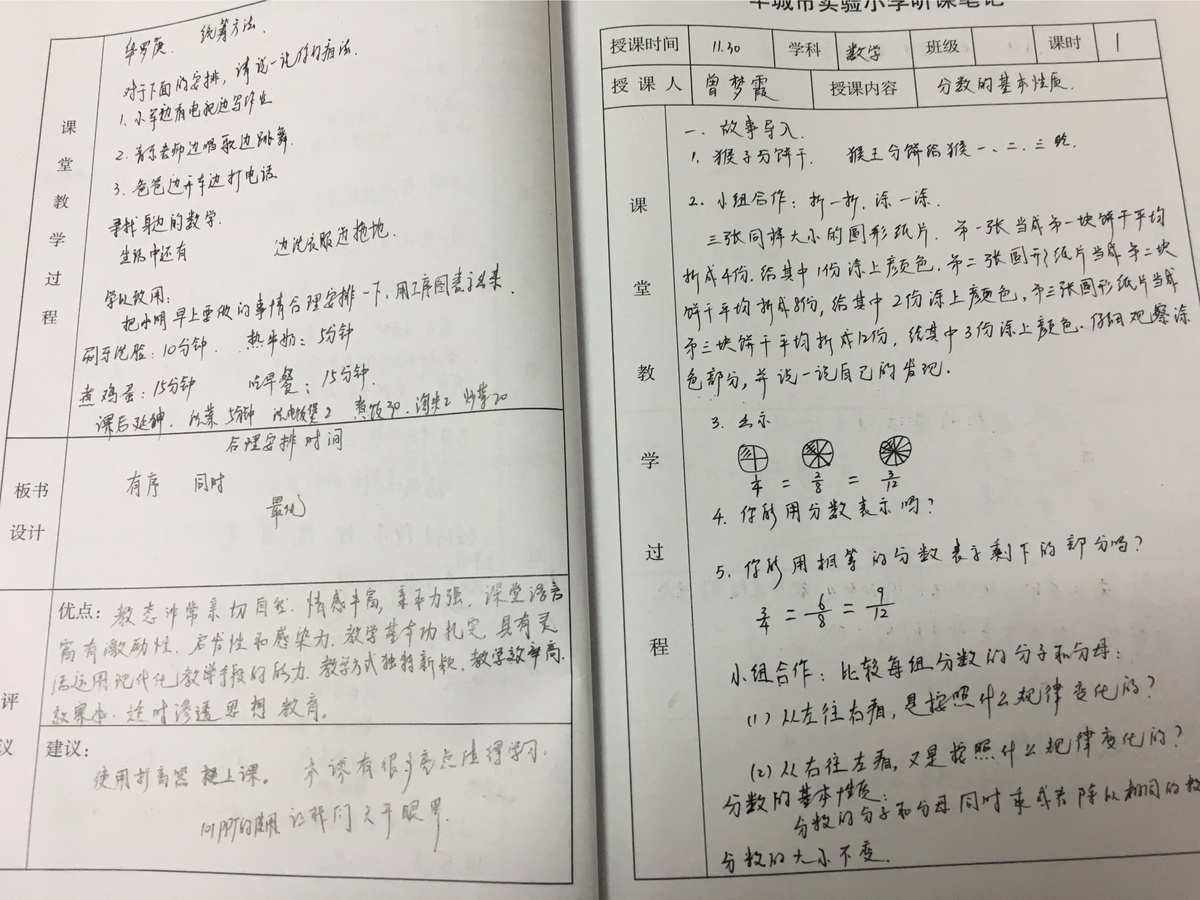 课堂教学过程
华罗庚 统筹方法.
对于下面的安排, 请说一说你的看法.
1. 小军边看电视边写作业
2. 音乐老师边唱歌边跳舞.
3. 爸爸边开车边打电话
寻找身边的数学.
生活中还有 边洗衣服边拖地.
学以致用:
把小明早上要做的事情合理安排一下, 用工序图表示出来.
刷牙洗脸: 10分钟. 热牛奶: 5分钟
煮鸡蛋: 15分钟 吃早餐: 15分钟.
课后延伸. 洗菜 5分钟 洗电饭煲2 煮饭30. 淘米2 炒菜20
板书设计
合理安排时间
有序 同时
最优
评议
优点: 教态非常亲切自然. 情感丰富, 亲和力强. 课堂语言
富有激励性. 启发性和感染力. 教学基本功扎实. 具有灵
活运用现代化教学手段的能力. 教学方式独特新颖. 教学效率高.
效果好. 适时渗透思想教育.
建议:
使用扩音器 上课。 本课有很多亮点值得学习.
PPT的使用 让我们大开眼界.
半城市实验小学听课笔记
授课时间 11.30 学科 数学 班级 课时 1
授课人 曾梦霞 授课内容 分数的基本性质.
课堂教学过程
一. 故事导入.
1. 猴子分饼干. 猴王分饼给猴一、二、三吃.
2. 小组合作: 折一折, 涂一涂.
三张同样大小的圆形纸片. 第一张当成第一块饼干平均
折成4份. 给其中1份涂上颜色. 第二张圆形纸片当成第二块
饼干平均折成8份, 给其中2份涂上颜色, 第三张圆形纸片当成
第三块饼干平均折成12份, 给其中3份涂上颜色. 仔细观察涂
色部分, 并说一说自己的发现.
3. 出示
1/4 = 2/8 = 3/12
4. 你能用分数表示吗?
5. 你能用相等的分数表示剩下的部分吗?
3/4 = 6/8 = 9/12
小组合作: 比较每组分数的分子和分母:
(1) 从左往右看, 是按照什么规律变化的?
(2) 从右往左看, 又是按照什么规律变化的?
分数的基本性质:
分数的分子和分母同时乘或者除以相同的数
分数的大小不变.